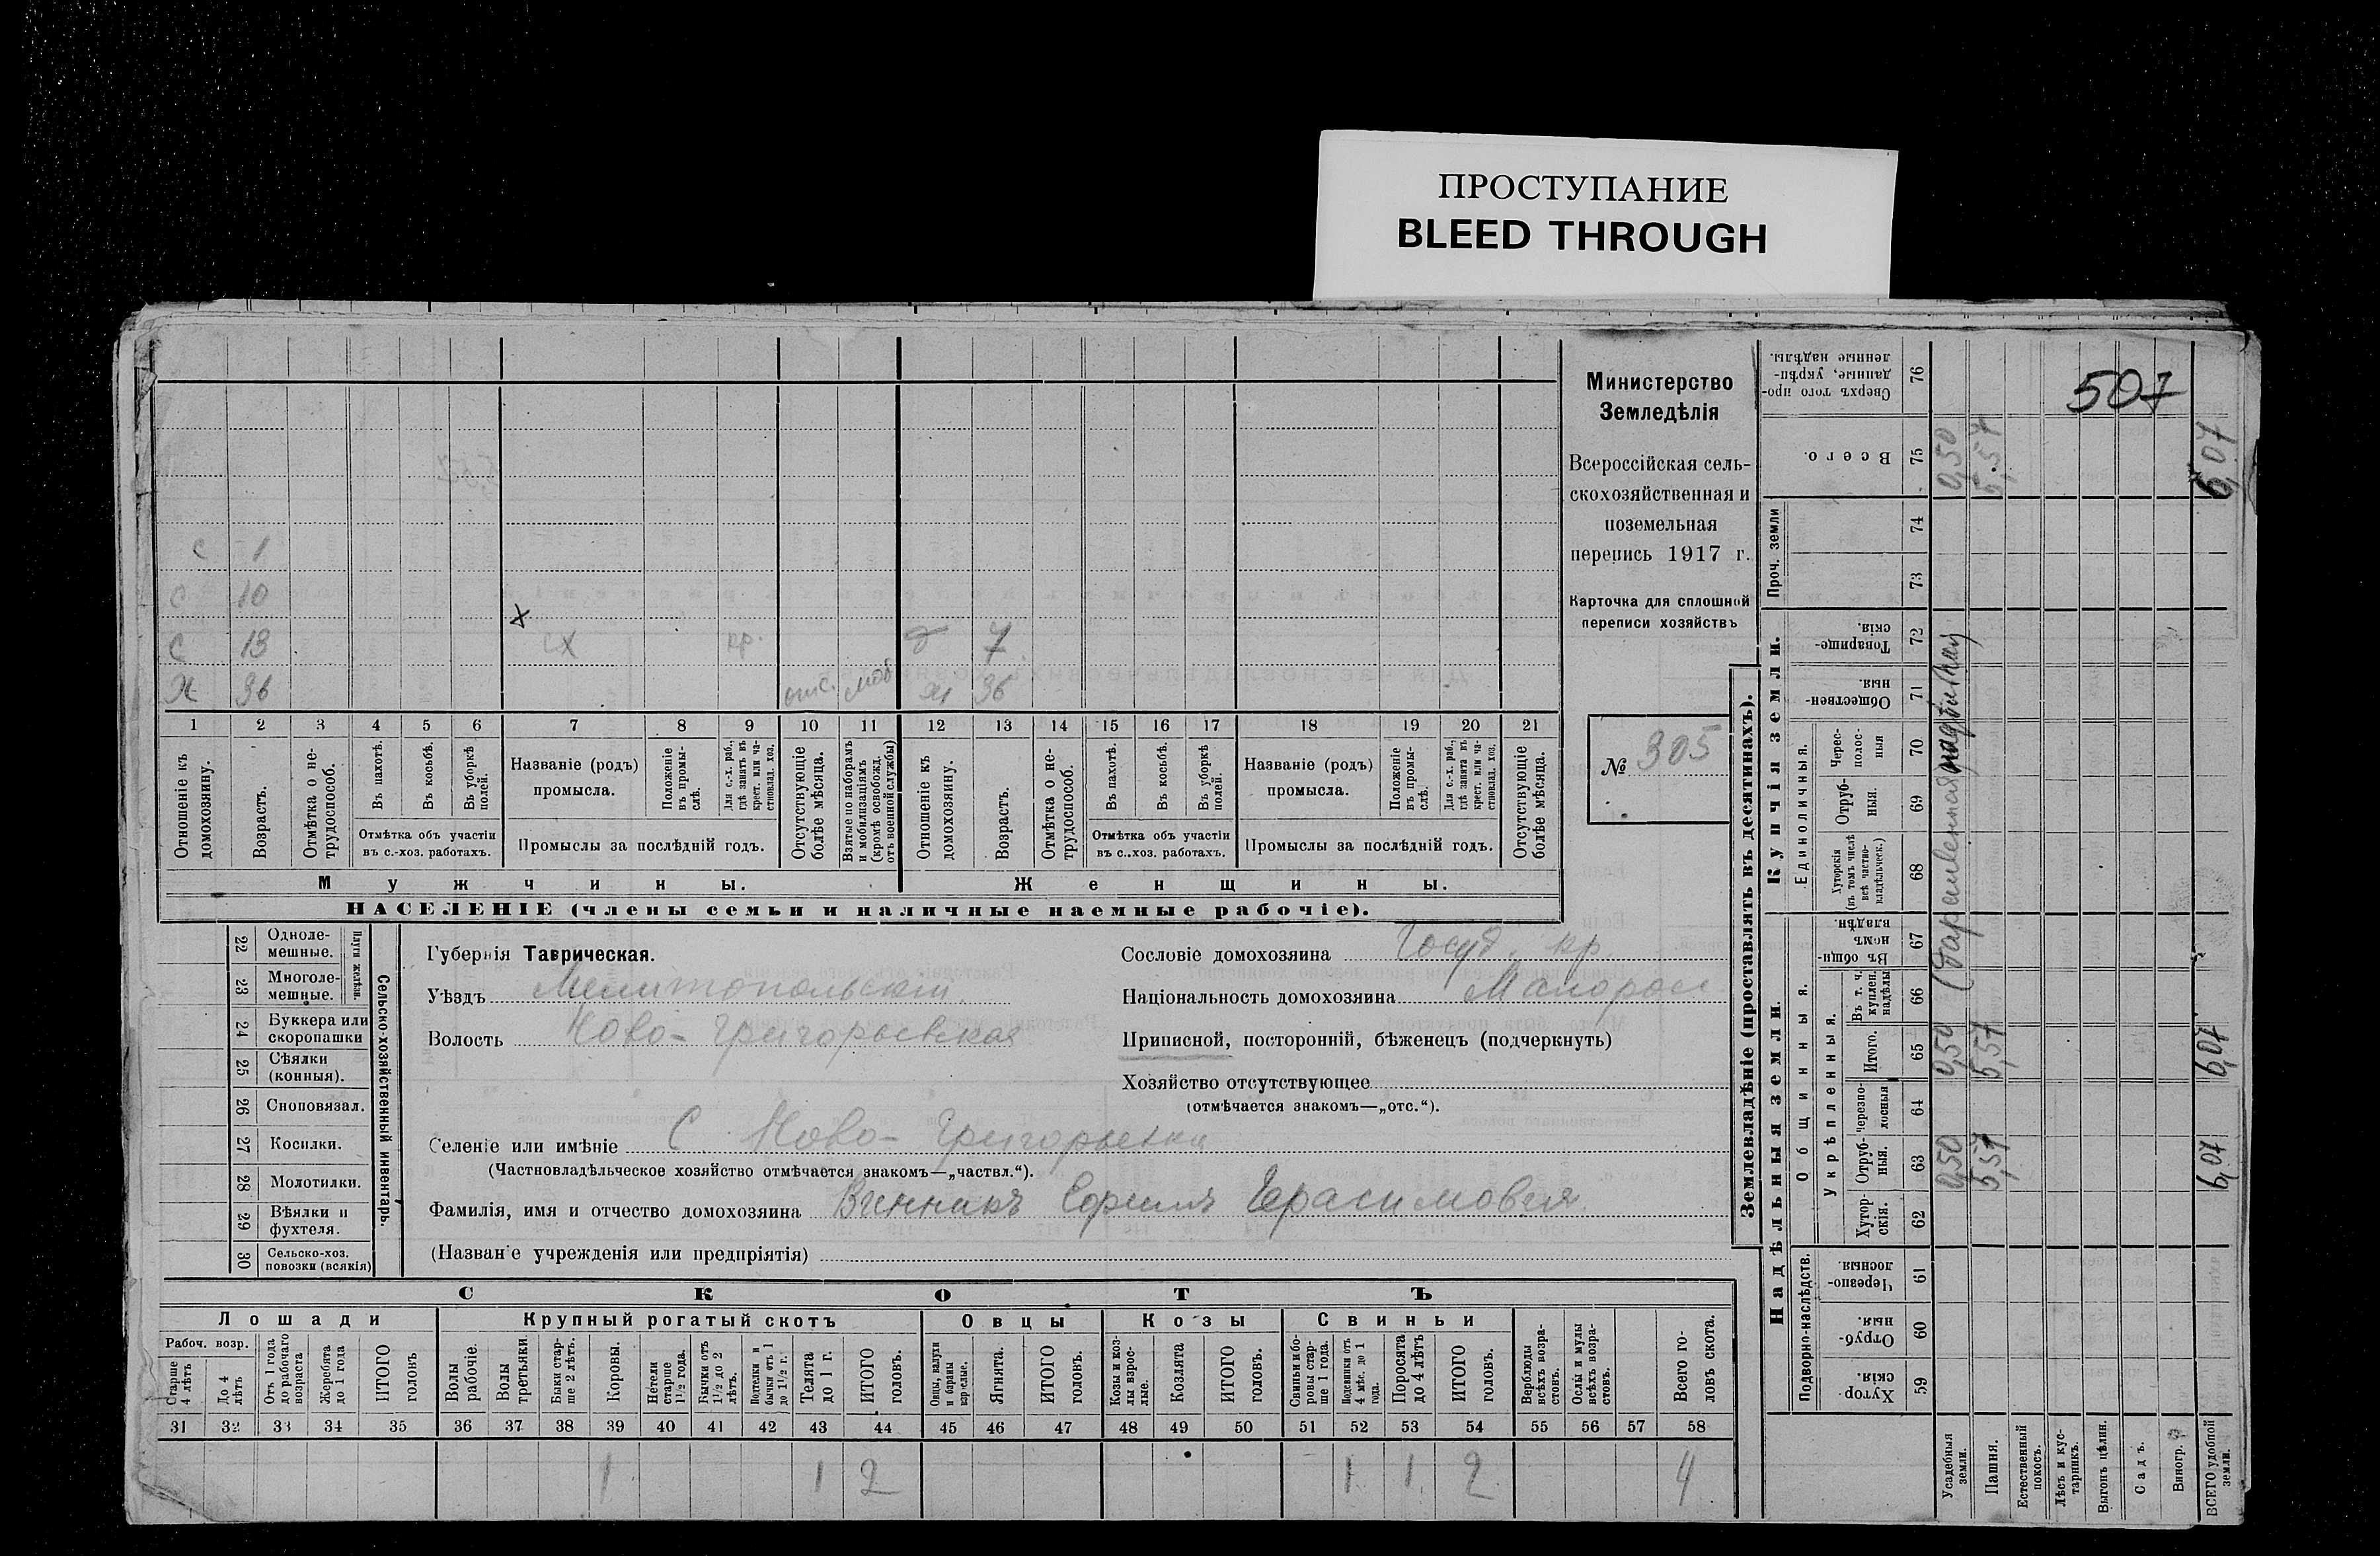 ПРОСТУПАНИЕ
BLEED THROUGH
507
Министерство
Земледѣлія
Всероссійская сель-
скохозяйственная и
поземельная
перепись 1917 г.
Карточка для сплошной
переписи хозяйствъ
№ 305
с 1
с 10
х
с 13 сх кр. д 7
Х 36 отс. моб х 36
1 2 3 4 5 6 7 8 9 10 11 12 13 14 15 16 17 18 19 20 21
Отношеніе къ домохозяину.
Возрастъ.
Отмѣтка о не-трудоспособ.
Въ пахотѣ.
Въ косьбѣ.
Въ уборкѣ полей.
Отмѣтка объ участіи
въ с.-хоз. работахъ.
Названіе (родъ)
промысла.
Положеніе въ промы-слѣ.
Для с.-х. раб., гдѣ занятъ въ крест. или ча-ствовлад. хоз.
Промыслы за послѣдній годъ.
Отсутствующіе болѣе мѣсяца.
Взятые по наборамъ и мобилизаціямъ (кромѣ освобожд. отъ военной службы)
Отношеніе къ домохозяину.
Возрастъ.
Отмѣтка о не-трудоспособ.
Въ пахотѣ.
Въ косьбѣ.
Въ уборкѣ полей.
Отмѣтка объ участіи
въ с.-хоз. работахъ.
Названіе (родъ)
промысла.
Положеніе въ промы-слѣ.
Для с.-х. раб., гдѣ занята въ крест. или ча-ствовлад. хоз.
Промыслы за послѣдній годъ.
Отсутствующіе болѣе мѣсяца.
Мужчины.
Женщины.
НАСЕЛЕНІЕ (члены семьи и наличные наемные рабочіе).
22 Одноле-мешные.
23 Многоле-мешные.
Плуги желѣзн.
24 Буккера или скоропашки
25 Сѣялки (конныя).
26 Сноповязал.
27 Косилки.
28 Молотилки.
29 Вѣялки и фухтеля.
30 Сельско-хоз. повозки (всякія)
Сельско-хозяйственный инвентарь.
Губернія Таврическая.
Уѣздъ Мелитопольскій
Волость Ново-Григорьевская
Сословіе домохозяина Госуд. кр.
Національность домохозяина Малоросс
Приписной, посторонній, бѣженецъ (подчеркнуть)
Хозяйство отсутствующее
(отмѣчается знакомъ—„отс.“).
Селеніе или имѣніе С. Ново-Григорьевка
(Частновладѣльческое хозяйство отмѣчается знакомъ—„частвл.“).
Фамилія, имя и отчество домохозяина Винникъ Ефимъ Герасимовъ
(Названіе учрежденія или предпріятія)
СКОТЪ
Лошади
Крупный рогатый скотъ
Овцы
Козы
Свиньи
Рабоч. возр.
Старше 4 лѣтъ
До 4 лѣтъ
Отъ 1 года до рабочаго возраста
Жеребята до 1 года
ИТОГО головъ
Волы рабочіе.
Волы третьяки.
Быки стар-ше 2 лѣтъ.
Коровы.
Нетели старше 1½ года.
Бычки отъ 1½ до 2 лѣтъ.
бычки отъ 1 до 1½ г.
Телята до 1 г.
ИТОГО головъ.
Овцы, валухи и бараны взрослые.
Ягнята.
ИТОГО головъ.
Козы и коз-лы взрос-лые.
Козлята
ИТОГО головъ.
Свиньи и бо-ровы стар-ше 1 года.
Подсвинки отъ 4 мѣс. до 1 года.
Поросята до 4 лѣтъ
ИТОГО головъ.
Верблюды всѣхъ возра-стовъ.
Ослы и мулы всѣхъ возра-стовъ.
Всего го-ловъ скота.
31 32 33 34 35 36 37 38 39 40 41 42 43 44 45 46 47 48 49 50 51 52 53 54 55 56 57 58
1 1 2 1 1 2 4
Землевладѣніе (проставлять въ десятинахъ).
Купчія земли.
Надѣльныя земли.
Проч. земли
Единоличныя.
Общинныя.
Укрѣпленныя.
Подворно-наслѣдств.
Сверхъ того про-данные, укрѣп-ленные надѣлы. 76
Всего. 75
74
73
Товарище-скія. 72
Обществен-ныя. 71
Черес-полос-ныя 70
Отруб-ныя. 69
Хуторскія (въ томъ числѣ всѣ частно-владѣльческ.) 68
Въ общин-номъ владѣн. 67
Въ т. ч. куплен. надѣлы 66
Итого. 65
Черезпо-лосныя 64
Отруб-ныя. 63
Хутор-скія. 62
Черезпо-лосныя. 61
Отруб-ныя. 60
Хутор-скія. 59
0,50 0,50 0,50
5,57 5,57 5,57
6,07 6,07 6,07
Усадебныя земли.
Пашня.
Естественный покосъ.
Лѣсъ и кус-тарникъ.
Выгонъ цѣлин.
Садъ.
Виногр.
ВСЕГО удобной земли.